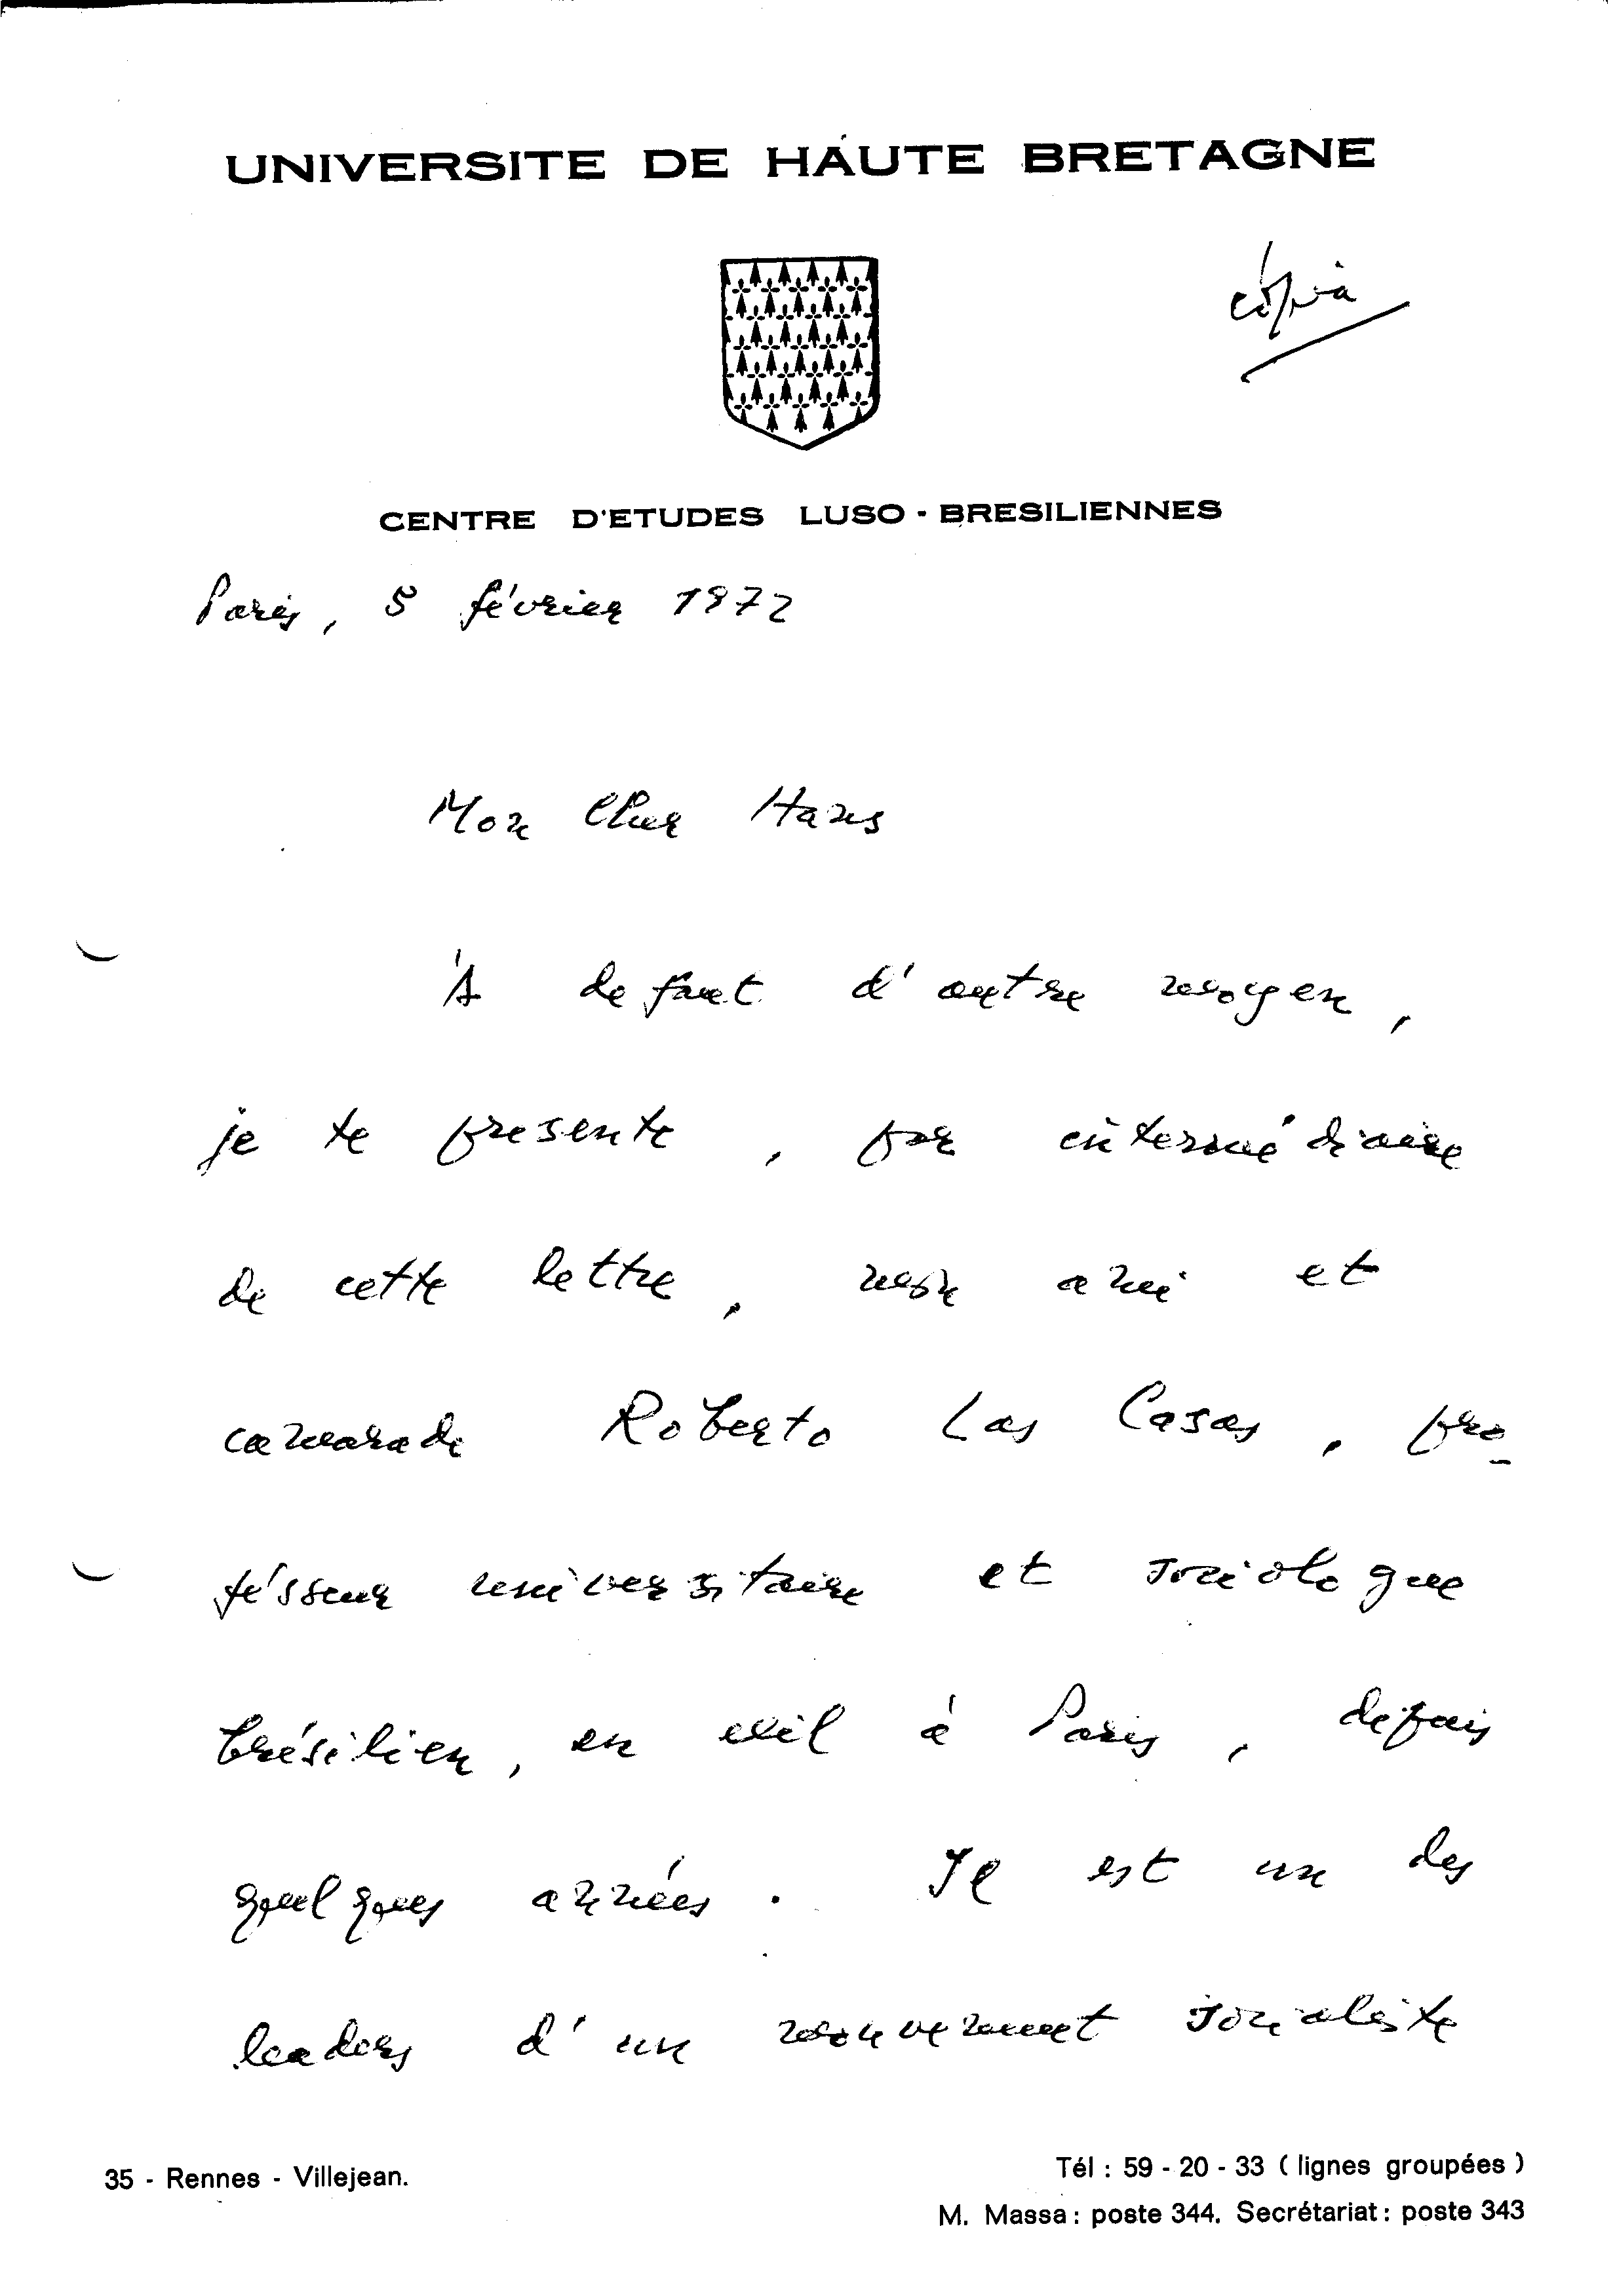 UNIVERSITE DE HAUTE BRETAGNE
cópia
CENTRE D'ETUDES LUSO - BRESILIENNES
Paris, 5 février 1972
Mon Cher Hans
À defaut d'autre moyen,
je te presente, par intermédiaire
de cette lettre, mon ami et
camarade Roberto Las Casas, pro-
fésseur universitaire et sociologue
brésilien, en exil à Paris, depuis
quelques années. Il est un des
leaders d'un mouvement socialiste
35 - Rennes - Villejean.
Tél : 59 - 20 - 33 ( lignes groupées )
M. Massa : poste 344. Secrétariat : poste 343